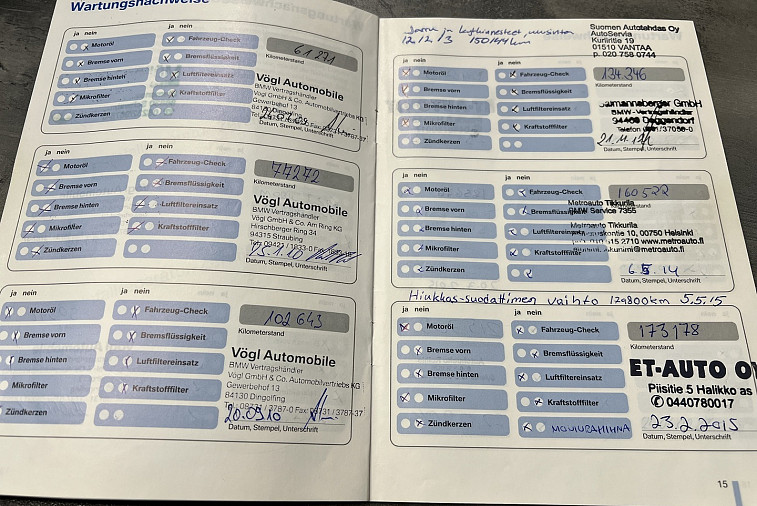 Wartungsnachweise
ja nein
Motoröl
Bremse vorn
Bremse hinten
Mikrofilter
Zündkerzen
ja nein
Fahrzeug-Check
Bremsflüssigkeit
Luftfiltereinsatz
Kraftstofffilter
61271
Kilometerstand
Vögl Automobile
BMW Vertragshändler
Vögl GmbH & Co. Automobilvertriebs KG
Gewerbehof 13
84130 Dingolfing
Datum, Stempel, Unterschrift
ja nein
Motoröl
Bremse vorn
Bremse hinten
Mikrofilter
Zündkerzen
ja nein
Fahrzeug-Check
Bremsflüssigkeit
Luftfiltereinsatz
Kraftstofffilter
77272
Kilometerstand
Vögl Automobile
BMW Vertragshändler
Vögl GmbH & Co. Am Ring KG
Hirschberger Ring 34
94315 Straubing
15.1.10
Datum, Stempel, Unterschrift
ja nein
Motoröl
Bremse vorn
Bremse hinten
Mikrofilter
Zündkerzen
ja nein
Fahrzeug-Check
Bremsflüssigkeit
Luftfiltereinsatz
Kraftstofffilter
102643
Kilometerstand
Vögl Automobile
BMW Vertragshändler
Vögl GmbH & Co. Automobilvertriebs KG
Gewerbehof 13
84130 Dingolfing
Tel. 08731 / 3787-0 Fax: 08731 / 3787-37
20.09.10
Datum, Stempel, Unterschrift
12.12.13 150144km
Suomen Autotehdas Oy
AutoServia
Kuriiritie 19
01510 VANTAA
p. 020 758 0744
ja nein
Motoröl
Bremse vorn
Bremse hinten
Mikrofilter
Zündkerzen
ja nein
Fahrzeug-Check
Bremsflüssigkeit
Luftfiltereinsatz
Kraftstofffilter
134.246
Kilometerstand
GmbH
BMW - Vertragshändler
94469 Deggendorf
Telefon
Datum, Stempel, Unterschrift
ja nein
Motoröl
Bremse vorn
Bremse hinten
Mikrofilter
Zündkerzen
ja nein
Fahrzeug-Check
Bremsflüssigkeit
Luftfiltereinsatz
Kraftstofffilter
160522
Metroauto Tikkurila
BMW Service 7355
Metroauto Tikkurila
10, 00750 Helsinki
2710 www.metroauto.fi
@metroauto.fi
6.5.14
Datum, Stempel, Unterschrift
Hiukkas-suodattimen vaihto 129800km 5.5.15
ja nein
Motoröl
Bremse vorn
Bremse hinten
Mikrofilter
Zündkerzen
ja nein
Fahrzeug-Check
Bremsflüssigkeit
Luftfiltereinsatz
Kraftstofffilter
173178
Kilometerstand
ET-AUTO
Piisitie 5 Halikko as
✆ 0440780017
23.2.2015
Datum, Stempel, Unterschrift
15